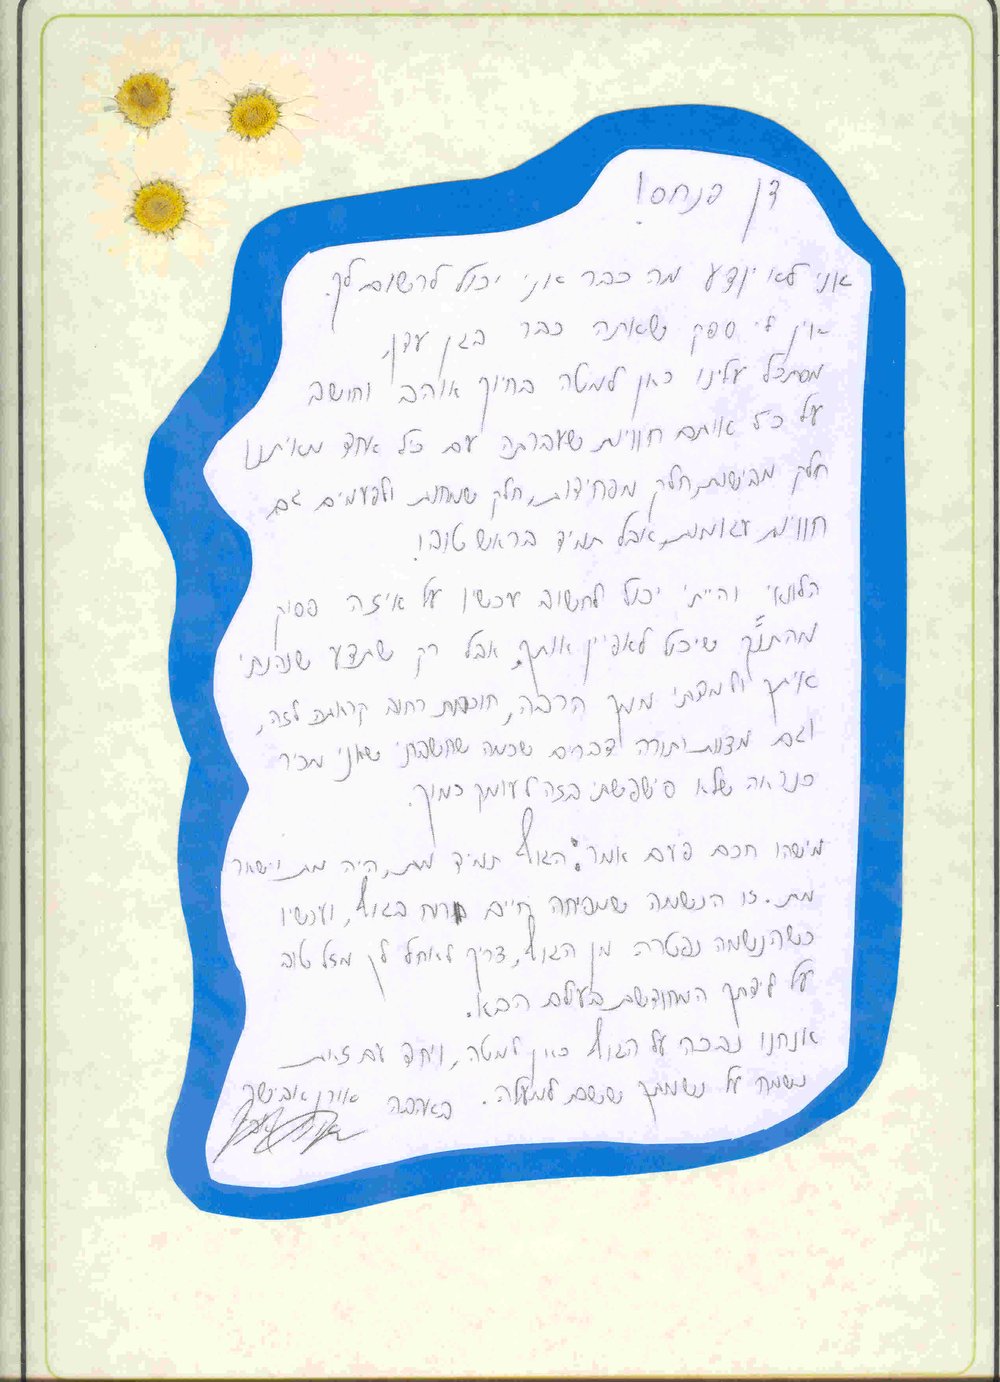 דן פנחס!
אני לא יודע מה כבר אני יכול לרשום לך.
אין לי ספק שאתה כבר בגן עדן,
מסתכל עלינו כאן למטה בחיוך אוהב וחושב
על כל אותם חוויות שעברת עם כל אחד מאיתנו
חלק מביישות, חלק מפחידות, חלק שמחות ולפעמים גם
חוויות עגומות, אבל תמיד בראש טוב!
הלוואי והייתי יכול לחשוב עכשיו על איזה פסוק
מהתנ"ך שיכול לאפיין אותך, אבל רק שתדע שנהנתי
איתך ולמדתי ממך הרבה, חוכמת רחוב קראת לזה,
וגם מצוות ותורה דברים שכמה שחשבתי שאני מכיר
כנראה שלא פישפשתי בזה לעומק כמוך.
מישהו חכם פעם אמר: הגוף תמיד מת, היה מת ויישאר
מת. זו הנשמה שמפיחה חיים ורוח בגוף, ועכשיו
כשהנשמה נפטרה מן הגוף, צריך לאחל לך מזל טוב
על לידתך המחודשת בעולם הבא.
אנחנו נבכה על הגוף כאן למטה, ויחד עם זאת
נשמח על נשמתך ששם למעלה. באהבה